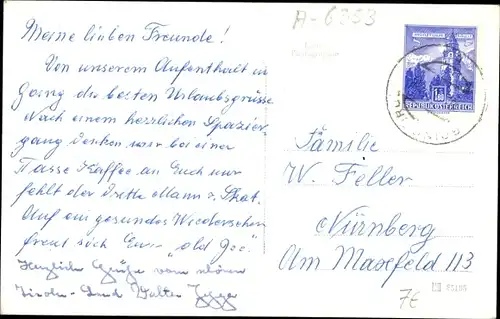 A-6353
Meine lieben Freunde!
Von unserem Aufenthalt in
Going die besten Urlaubsgrüsse.
Nach einem herrlichen Spazier-
gang denken wir bei einer
Tasse Kaffee an Euch nur
fehlt der dritte Mann z. Skat.
Auf ein gesundes Wiedersehen
freut sich Euer "old Joe".
Herzliche Grüße vom
Tirolen-Land Walter
REPUBLIK ÖSTERREICH
GOING
Familie
W. Feller
Nürnberg
Am Maxfeld 113
7€